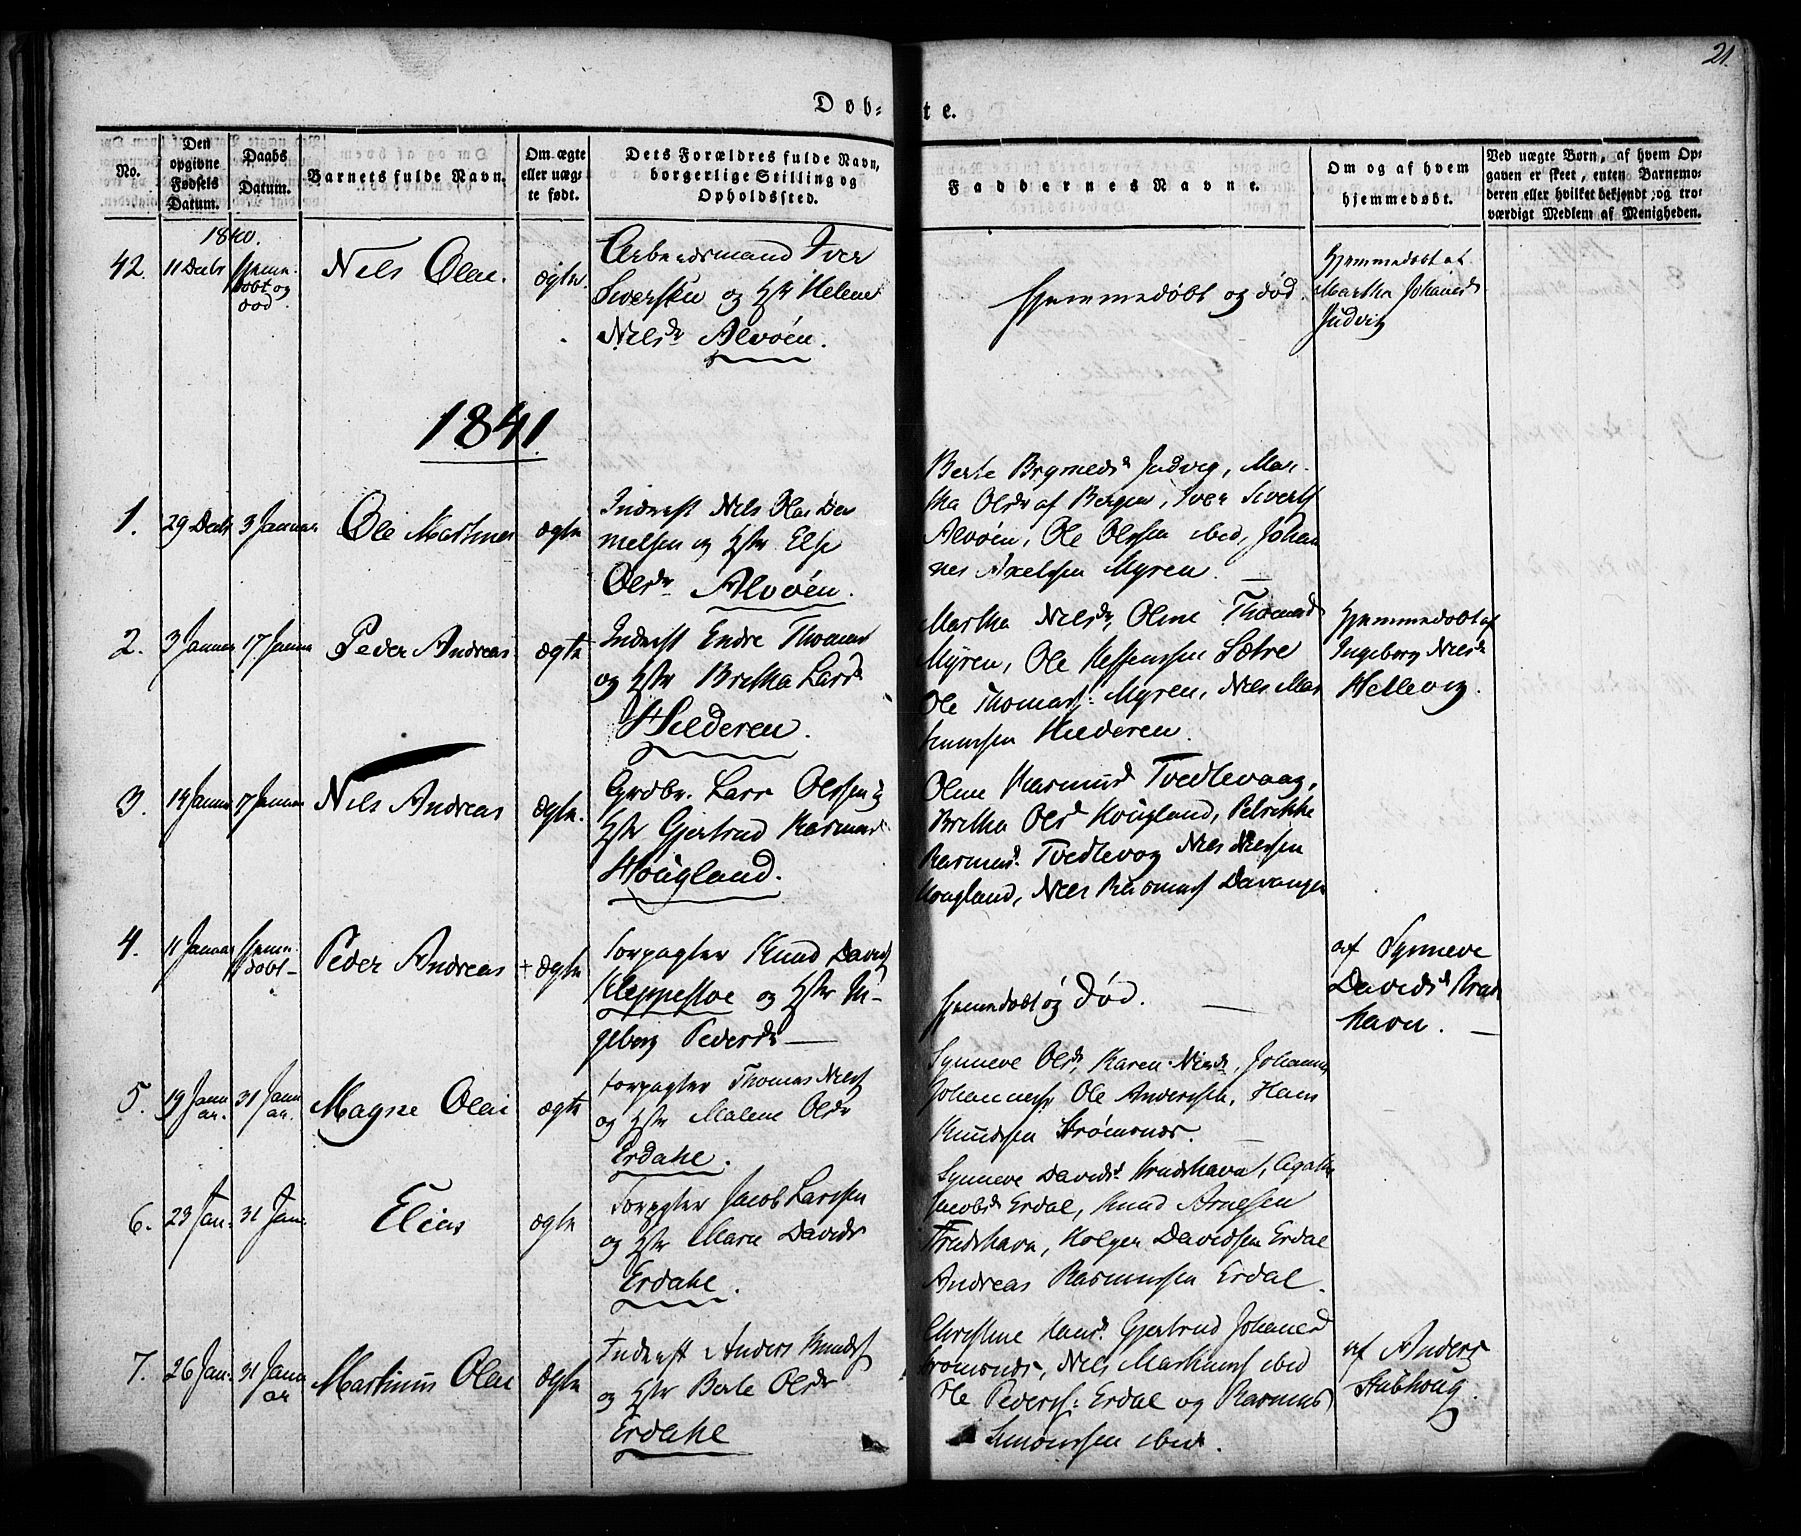 21.
Døb-te.
No.
Den opgivne Fødsels Datum.
Daabs Datum.
Barnets fulde Navn.
Om ægte eller uægte født.
Dets Forældres fulde Navn, borgerlige Stilling og Opholdssted.
Faddernes Navne.
Om og af hvem hjemmedøbt.
Ved uægte Børn, af hvem Opgaven er skeet, enten Barnemoderen eller hvilket bekjendt og troværdigt Medlem af Menigheden.
1840.
42. 11 Decbr Hjemmedøbt og død Nels Olai. ægte.
Arbeidsmand Iver
Siversen og Hstr Helene
Nelsdr Alvøen.
Hjemmedøbt og død.
Hjemmedøbt af
Martha Johanesd
Judvig
1841.
1. 29 Decbr 3 Januar Ole Martinus ægte
Inderst Nels
og Hstr Else
Olsdr Alvøen.
Berte Brynelsd Judvig, Mar-
tha Olsdr af Bergen, Iver Siverts
Alvøen, Ole Olssen ibid, Johan
nes Axelssen Myren.
2. 3 Januar 17 Januar Peder Andreas ægte
Inderst Endre Thomas
og Hstr Britha Larsd
Hilderen.
Martha Nelsd, Oline Thomasd
Myren, Ole Sætre
Ole Thomass: Myren, Nels Mar
tinussen Hilderen.
Hjemmedøbt af
Ingeborg Nelsd
Hellevig.
3. 14 Januar 17 Januar Nels Andreas ægte.
Grdbr. Lars Olssen og
Hstr Gjertrud Rasmusd
Hougland.
Oline Rasmusd Tvedtevaag,
Britha Olsd Hougland, Petrikke
Rasmusd. Tvedtevog Nels Nelssen
Hougland, Neels Rasmuss Davanger
4. 11 Januar Hjemmedøbt Peder Andreas + ægte
Forpagter Knud Davids
Kleppestøe og Hstr In-
geborg Pedersdr
Hjemmedøbt og død.
af Synneve
Davidsd Krudt
havn.
5. 19 Januar. 31 Januar. Magne Olai ægte
Forpagter Thomas Nels
og Hstr Malene Olsdr
Erdahl.
Synneve Olsd, Karen Nelsd, Johannes
Johanness Ole Anderssen, Hans
Knudssen Strømsnes.
6. 23 Jan. 31 Jan. Elias ægte
Forpagter Jacob Larssen
og Hstr Mari Davidsdr
Erdahl.
Synneve Davidsd Krudthavn, Agatha
Jacobsd Erdal, Knud Arnesen
Krudthavn, Holger Davidsen Erdal
Andreas Rasmussen Erdal.
7. 26 Jan. 31 Januar Martinus Olai ægte
Inderst Anders Knuds
og Hstr Berte Olsdr
Erdahl
Christine Hansd. Gjertrud Johanesd
Stromsnes, Nels Martinuss ibid
Ole Pederss: Erdal og Rasmus
Simonssen ibid.
af Anders
Stabhoug.